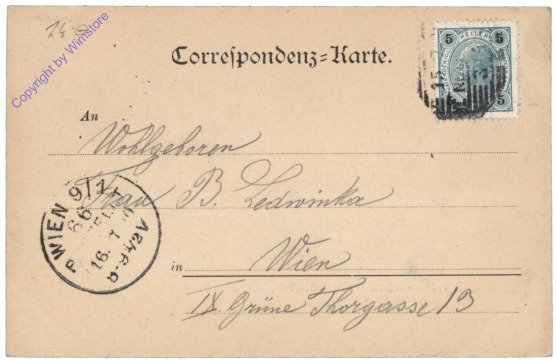 Copyright by Wimstore
Correspondenz-Karte.
5 HELLER 5
5
An
Wohlgeboren
Frau B. Ledwinka
in Wien
IX. Grüne Thorgasse 13
WIEN 9/1
66
16.
8-9½V